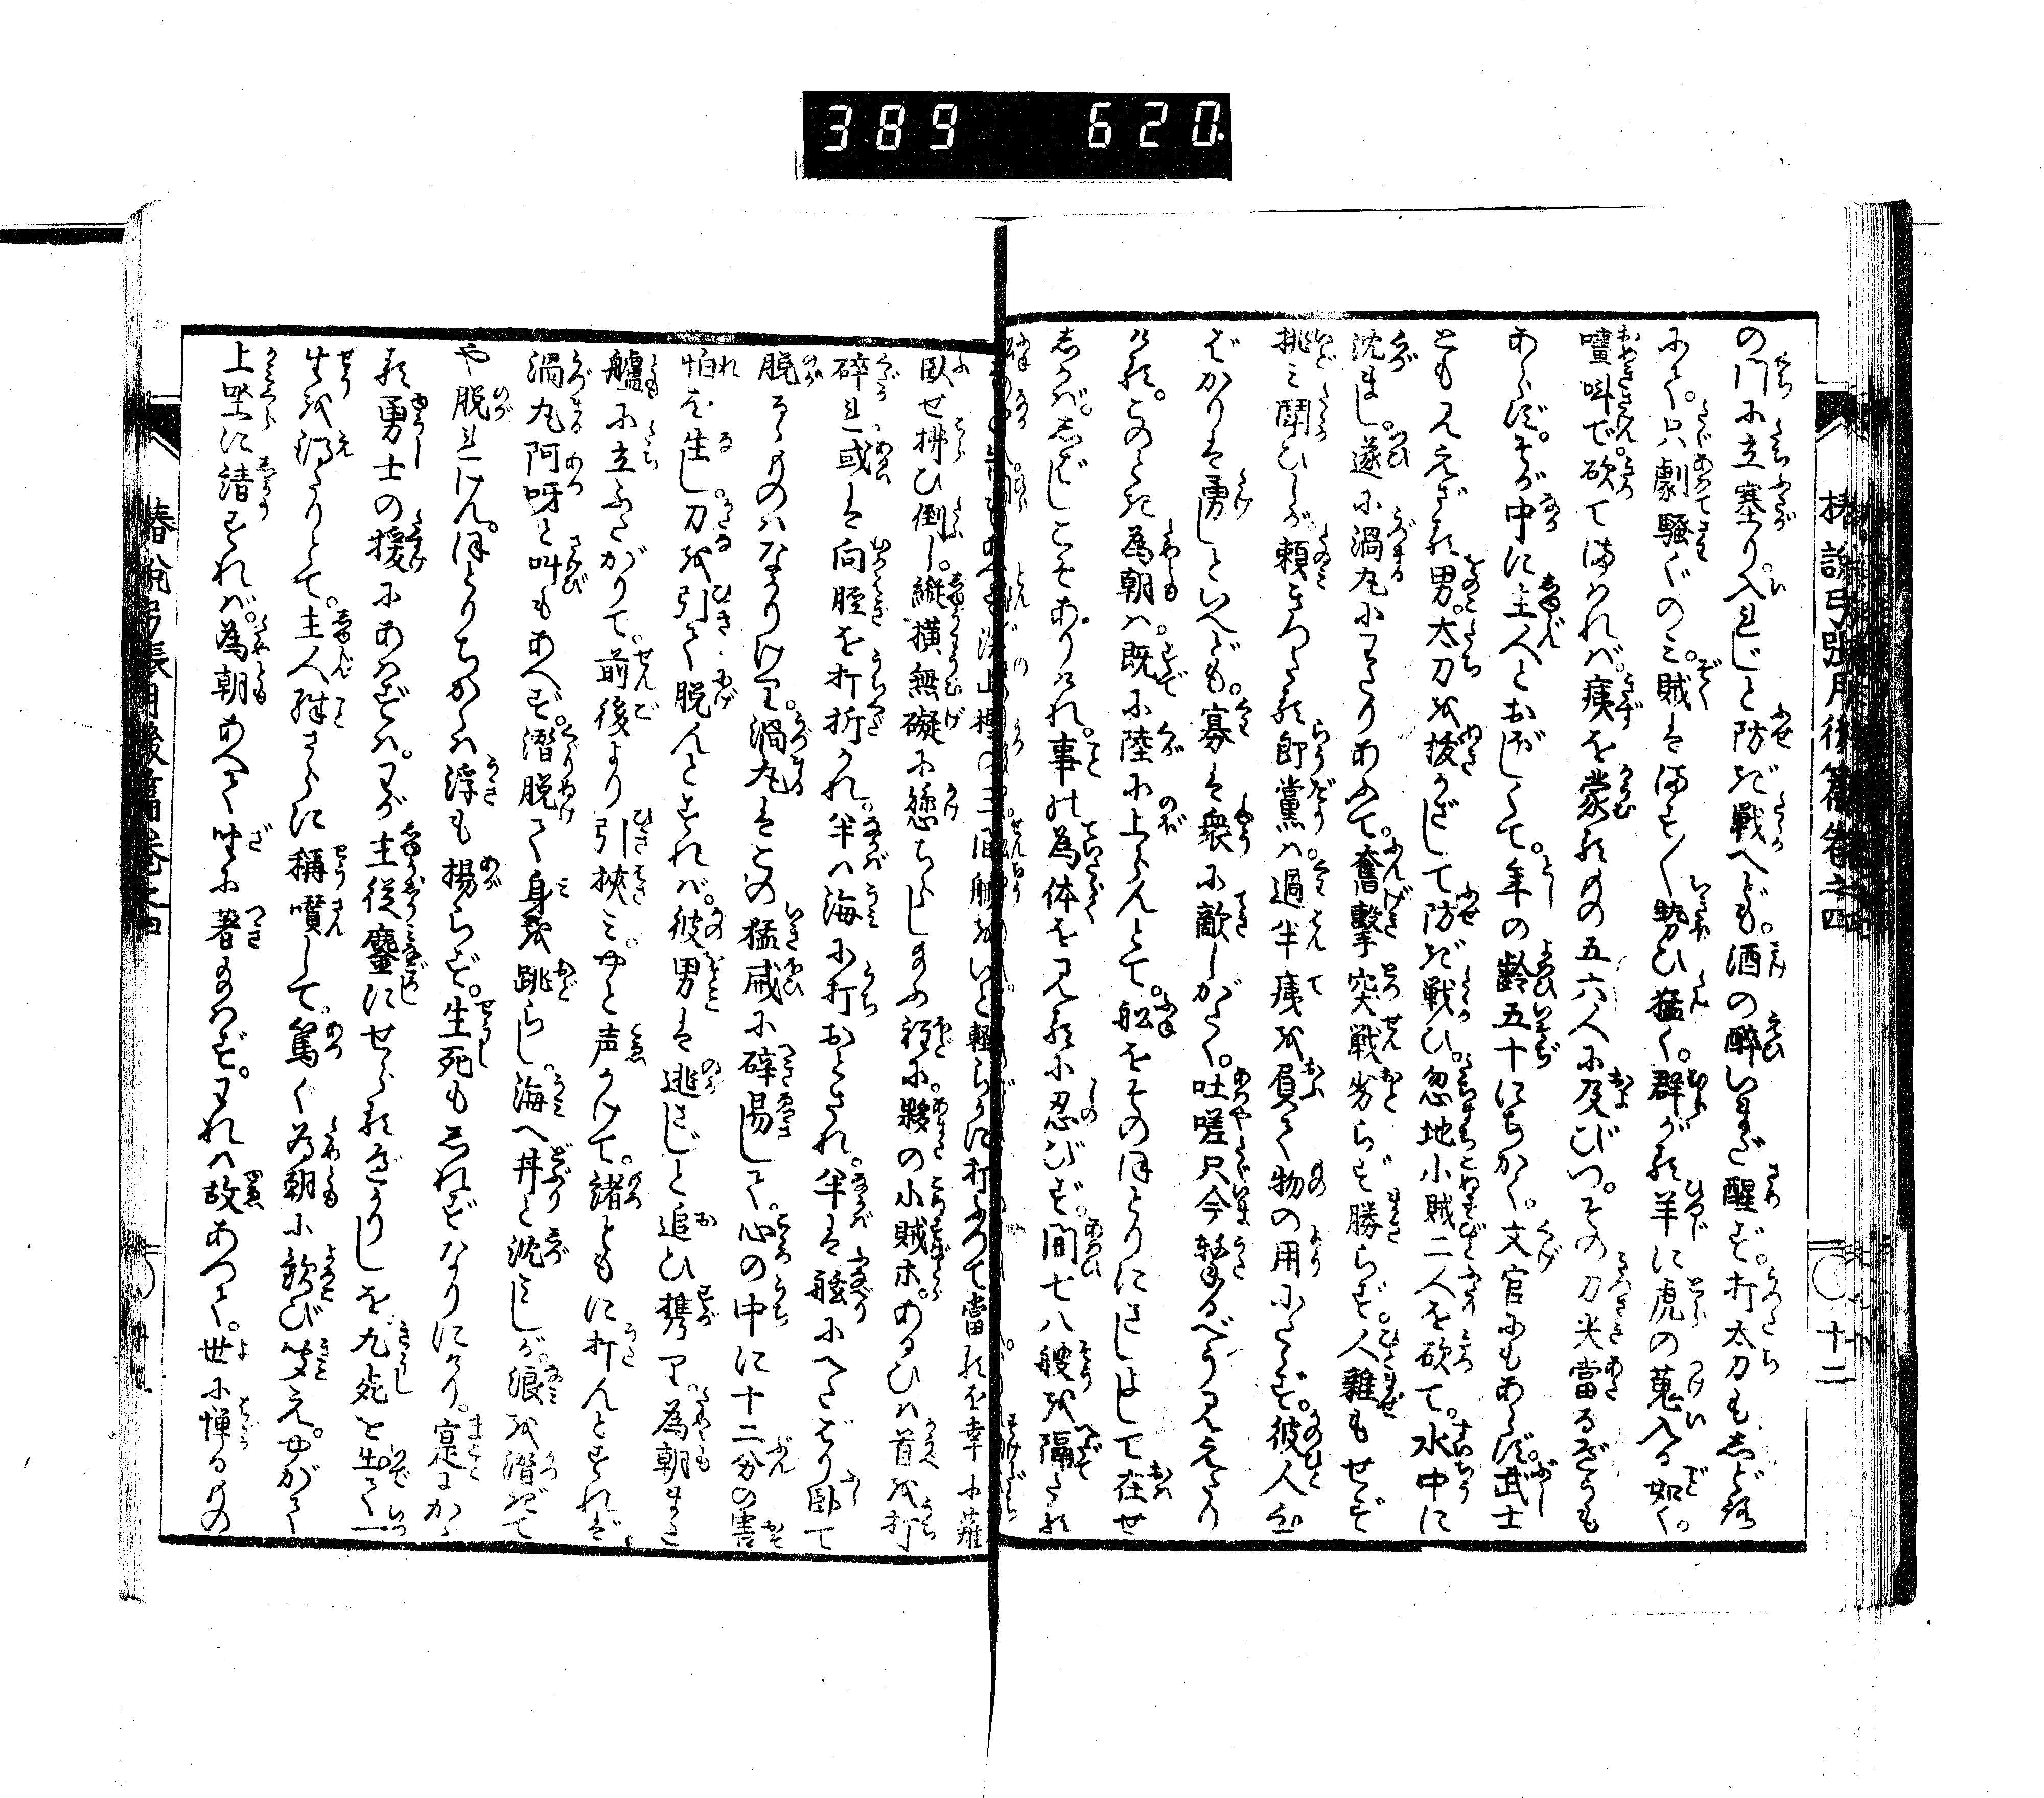 389 620.
椿説弓張月後篇巻之四
十二
の門に立塞り。入れじと防ぎ戦へども。酒の酔いまだ醒ず。打太刀もしどろ
にて。只劇騒ぐのみ。賊はます〳〵勢ひ猛く。群がる羊に虎の蒐入る如く。
囈叫で砍てまはれば。痍を蒙るもの五六人に及びつ。その刀尖當るべうも
あらず。そが中に主人とおぼしくて。年の齢五十にちかく。文官にもあらず。武士
とも見えざる男。太刀を抜かざして防ぎ戦ひ。忽地小賊二人を砍て。水中に
沈まし。遂に渦丸にわたりあふて。奮撃突戦劣らず勝らず。人雑もせず
挑み闘ひしが。頼きつたる郎黨は。過半痍を負て物の用にたゝず。彼人のみ
ばかりは勇しといへども。寡は衆に敵しがたく。吐嗟只今撃るべう見えたり
ける。このとき為朝は。既に陸に上らんとて。舩をそのほとりにさしよして在せ
しかば。しばしこそありけれ。事の為体を見るに忍びず。間七八艘を隔たる
臥せ拂ひ倒し。縦横無礙に懸ちらしまふ程に。夥の小賊等。あるひは首を打
碎れ。或は向脛を打折られ。半は海に打おとされ。半は舷にへたばり臥て
脱るゝものはなかりけり。渦丸はこの猛威に碎易して。心の中に十二分の害
怕を生し。刀を引て脱んとすれば。彼男は逃さじと追ひ携り。為朝また
艫に立ふたがりて。前後より引挾み。やと声かけて。諸ともに打んとすれば。
渦丸阿呀と叫もあへず。潜脱て身を跳らし。海へ丼と沈みしが。浪を潜ぎて
や脱れけん。ほとりちかくは浮も揚らず。生死もしれずなりにけり。寔にかゝ
る勇士の援にあはずは。わが主従鏖にせらるべかりしを。九死を出て一
生を得たりとて。主人殊さらに稱嘆して。篤く為朝に歓び聞え。やがて
上坐に請ずれば。為朝あへて坐に着給はず。われは故あつて。世に憚るもの
椿説弓張月後篇巻之四